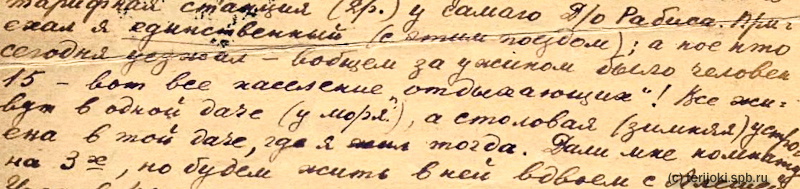 тарифная станция (гр.) у самаго Д/о Рабиса. При-
ехал я единственный (с этим поездом); а кое кто
сегодня уезжал - вобщем за ужином было человек
15 - вот все население "отдыхающих"! Все жи-
вут в одной даче (у моря), а столовая (зимняя) устро-
ена в той даче, где я жил тогда. Дали мне комнату
на 3х, но будем жить в ней вдвоем с
(c) terijoki.spb.ru